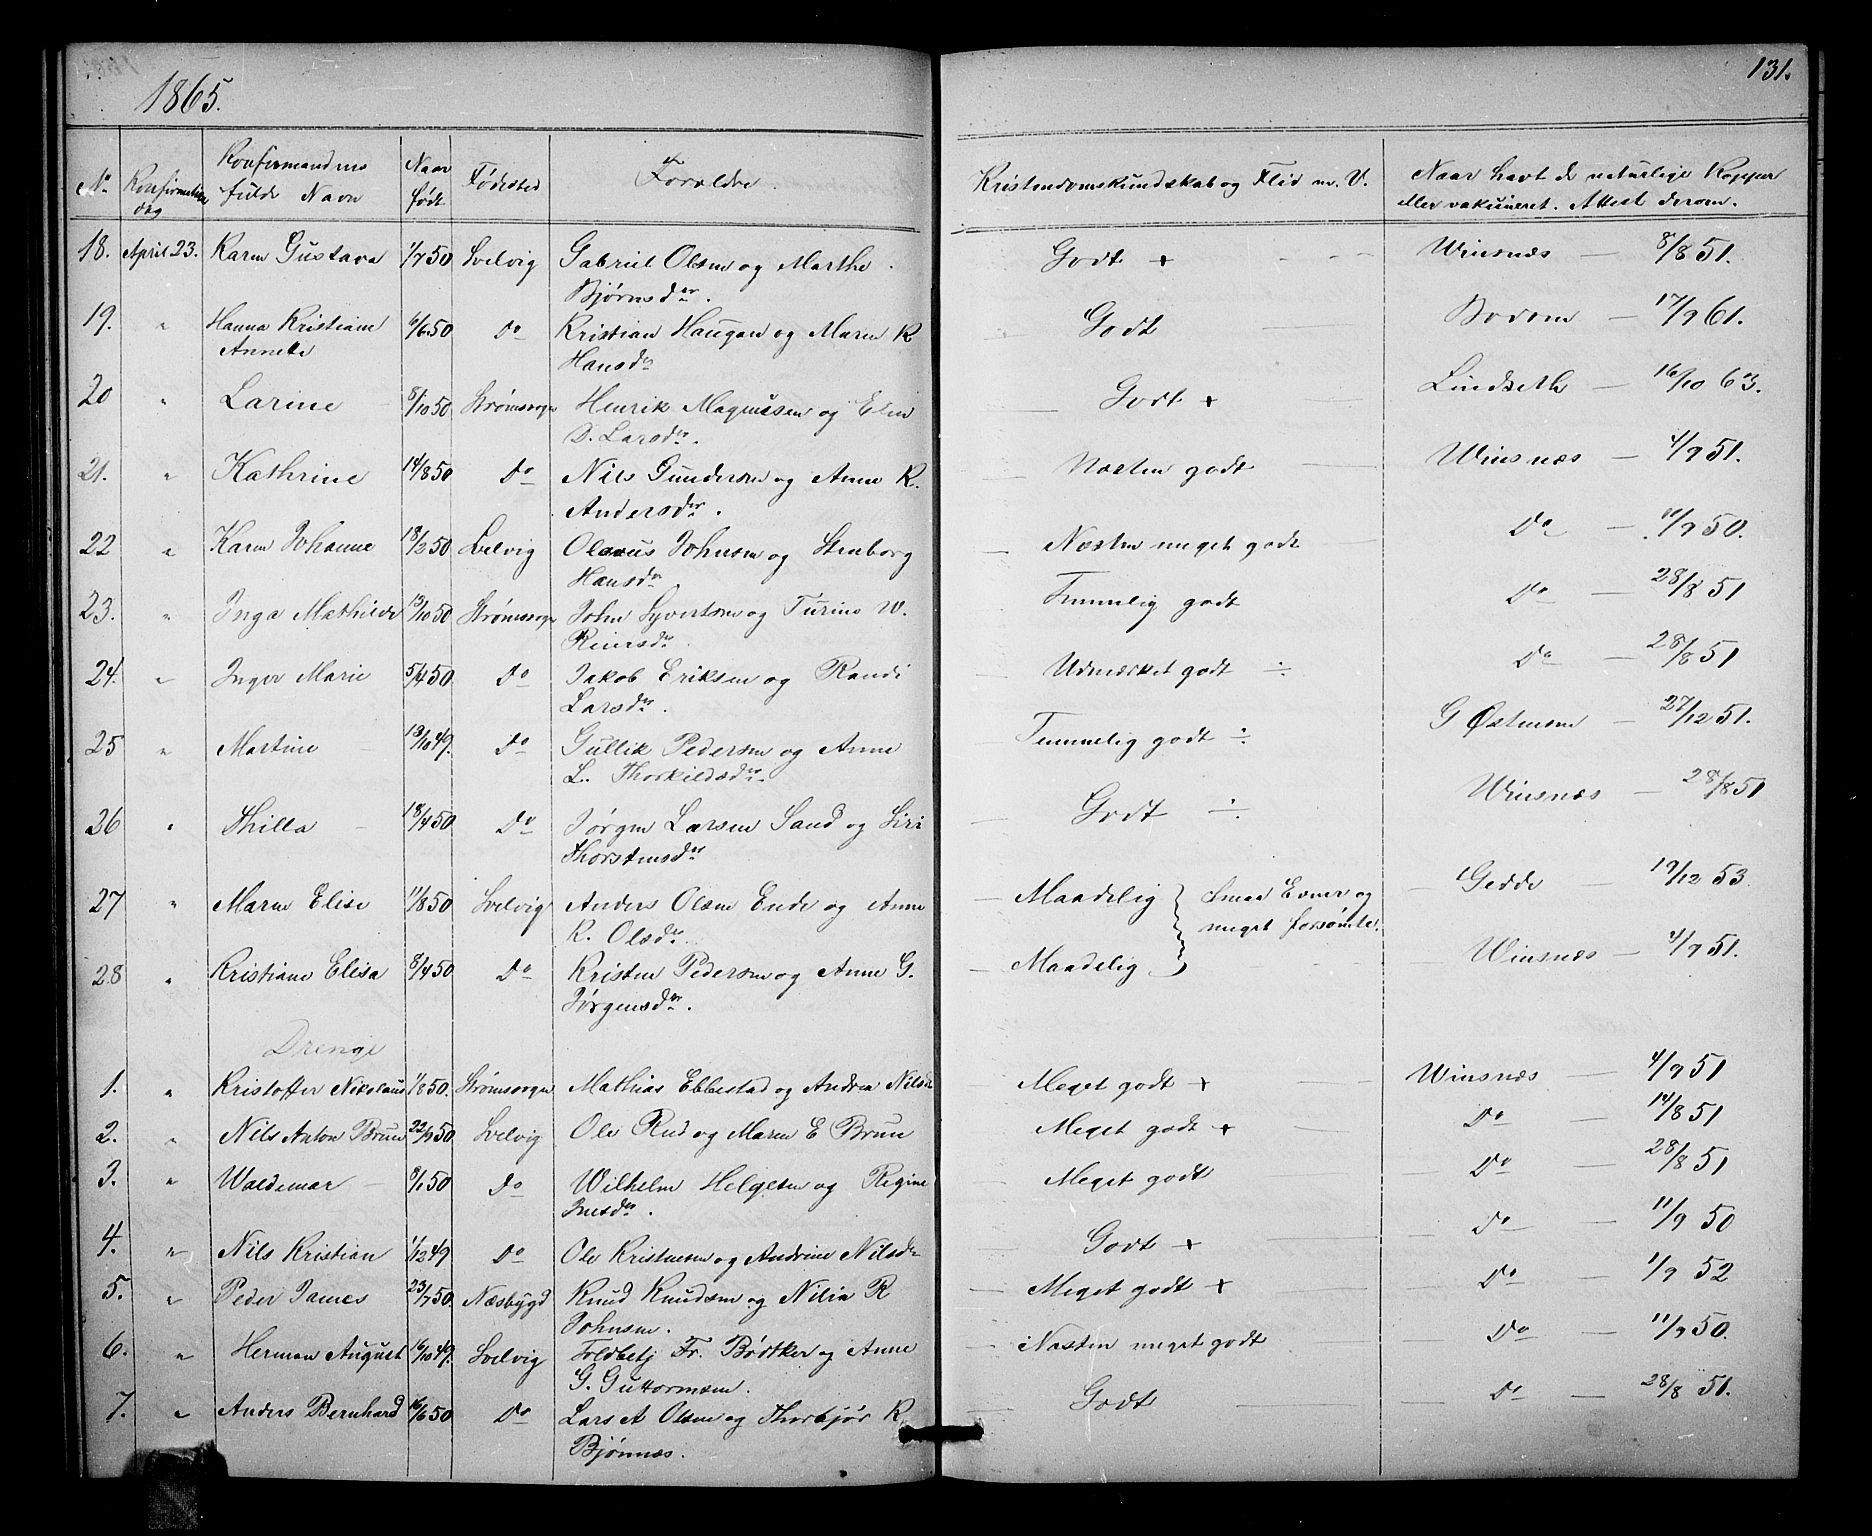 1865.
131.
No Konfirmations dag Konfirmandens fulde Navn Naar født Fødested Forældre. Kristendomskundskab og Flid m. V. Naar havt de naturlige Kopper eller vakcineret. Attest derom.
18. April 23. Karen Gustava 1/7 50 Svelvig Gabriel Olsen og Marthe Godt + Winsnæs — 8/8 51.
Bjørnsdr.
19. " Hanna Kristiane 6/6 50 Do Kristian Haugan og Maren K Godt Bodom — 17/9 61.
Annette Hansdr
20 " Larine 8/10 50 Strømsogn Henrik Magnussen og Elen Godt + Lindseth — 16/10 63.
D. Larsdr.
21. " Kathrine 14/8 50 Do Nils Gundersen og Anne K. Næsten godt Winsnæs — 4/9 51.
Andersdr.
22 " Karen Johanne 18/2 50 Svelvig Olaus Johnsen og Stenborg Næsten meget godt Do — 11/9 50.
Hansdr
23. " Inga Mathilde 13/10 50 Strømsogn John Syvertsen og Turine W. Temmelig godt Do — 28/8 51
Reiersdr.
24. " Inger Marie 5/4 50 Do Jakob Eriksen og Randi Udmærket godt ÷ Do — 28/8 51
Larsdr.
25 " Martine 13/10 49. Do Gullik Pedersen og Anne Temmelig godt ÷ G Østensen — 27/12 51.
L. Thorkildsdr.
26 " Thilla 18/4 50 Do Jørgen Larsen Sand og Siri Godt ÷ Winsnæs — 28/8 51
Thorstensdr
27 " Maren Elise 11/8 50 Svelvig Anders Olsen Ende og Anne Maadelig Smaa Evner og Gedde — 19/12 53.
K. Olsdr. meget forsømte.
28 " Kristiane Elisa 8/4 50 Do Kristen Pedersen og Anne G. Maadelig Winsnæs — 4/9 51.
Jørgensdr.
Drenge
1. " Kristoffer Nikolaus 1/8 50. Strømsogn Mathias Ebbestad og Andrea Nilsd Meget godt + Winsnæs — 4/9 51
2. " Nils Anton Brun 22/9 50 Svelvig Ole Rud og Maren E Brun Meget godt + Do — 14/8 51
3. " Waldemar 8/1 50 Do Wilhelm Helgesen og Regine Meget godt Do — 28/8 51
4. " Nils Kristian 1/12 49 Do Ole Kristensen og Andrine Nilsdr Godt + Do — 11/9 50
5. " Peder James 23/7 50. Næsbygd Knud Knudsen og Nilia R Meget godt + Do — 1/9 52
Johnsen.
6. " Herman August 16/10 49. Svelvig Toldbetj Fr. Bödtker og Anne Næsten meget godt Do — 11/9 50.
G. Guttormsen.
7. " Anders Bernhard 16/6 50 Do Lars A Olsen og Thorbjør K. Godt Do — 28/8 51.
Bjønnæs.